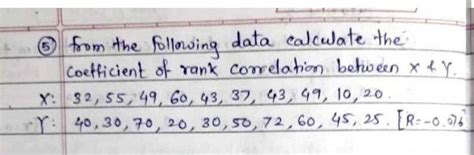 ⑤ from the following data calculate the
coefficient of rank correlation between x & Y.
X: 32, 55, 49, 60, 43, 37, 43, 49, 10, 20.
Y: 40, 30, 70, 20, 30, 50, 72, 60, 45, 25. [R=-0.076